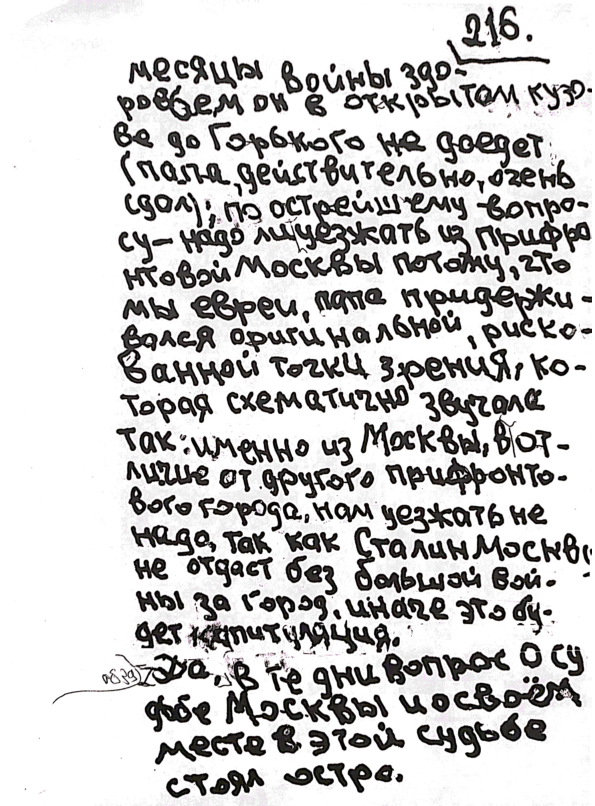 216.
месяцы войны здо-
ровьем он в открытом кузо-
ве до Горького не доедет
(папа, действительно, очень
сдал); по острейшему вопро-
су — надо ли уезжать из прифро
нтовой Москвы потому, что
мы евреи, папа придержи-
вался оригинальной, риско-
ванной точки зрения, ко-
торая схематично звучала
так: именно из Москвы, в от-
личие от другого прифронто-
вого города, нам уезжать не
надо, так как Сталин Москвы
не отдаст без большой вой-
ны за город, иначе это бу-
дет капитуляция.
Да, в те дни вопрос о су
дьбе Москвы и о своём
месте в этой судьбе
стоял остро.